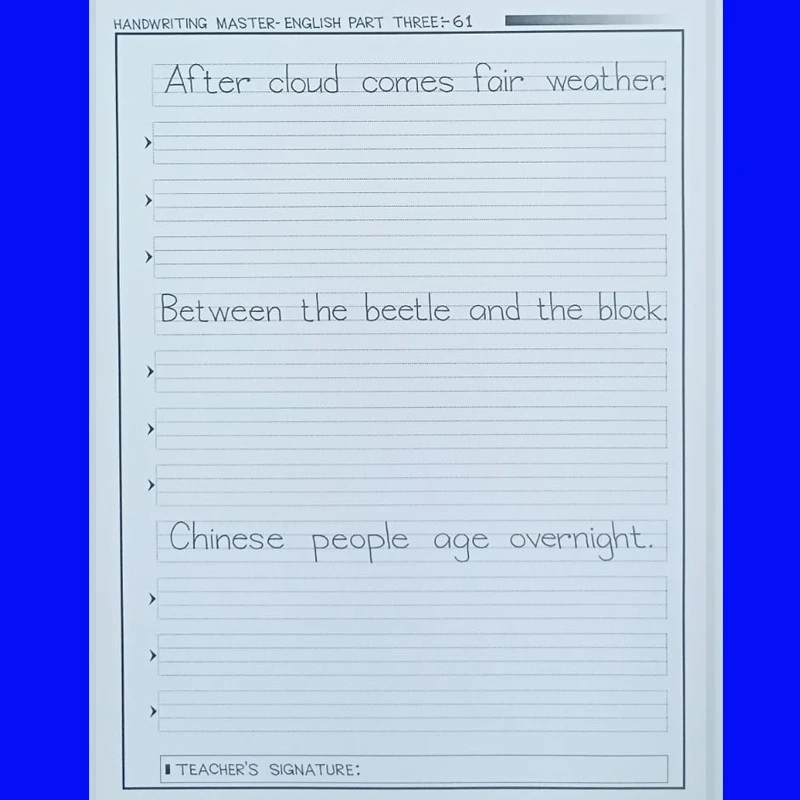 HANDWRITING MASTER-ENGLISH PART THREE:-61
After cloud comes fair weather.
Between the beetle and the block.
Chinese people age overnight.
TEACHER'S SIGNATURE: